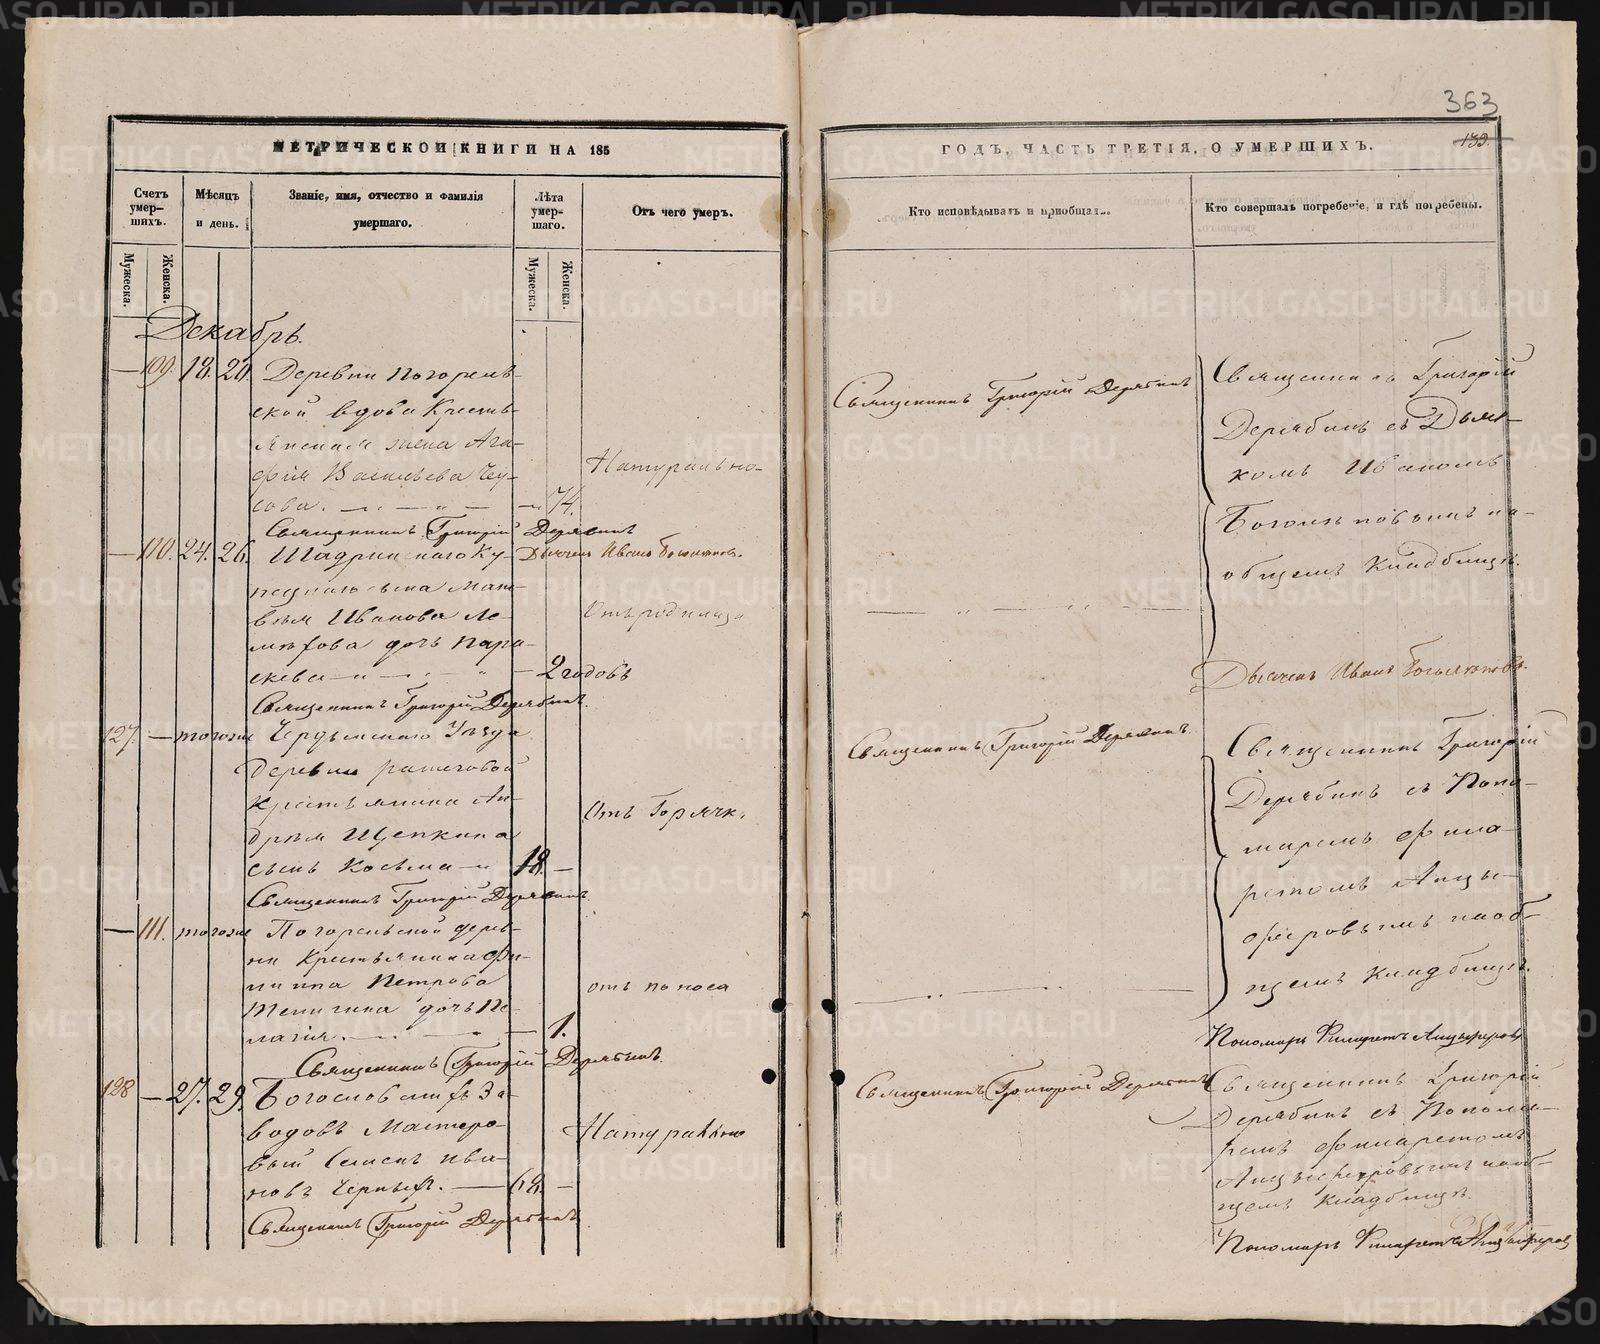 363
139.
МЕТРИЧЕСКОЙ КНИГИ НА 185
Счетъ умер-шихъ.
Мѣсяцъ и день.
Званіе, имя, отчество и фамилія умершаго.
Лѣта умер-шаго.
Отъ чего умеръ.
Мужеска.
Женска.
Мужеска.
Женска.
Декабрь.
— 109. 18. 20. Деревни Погорель-
ской вдова Кресть-
янская жена Ага-
фія Васильева Чу-
сова. — 74.
Натурально-
Священникъ Григорій Дерябинъ
Дьячекъ Иванъ Богомоловъ.
— 110. 24. 26. Шадринскаго Ку-
пецкаго сына Мат-
вѣя Иванова
дочь Пара-
скева — 2 годовъ
Отъ родимца
Священникъ Григорій Дерябинъ.
127. — тогоже Чердынскаго Уѣзда
Деревни
Крестьянина Ан-
дрѣя Щепкина
сынъ Косьма — 18. —
Отъ Горячк.
Священникъ Григорій Дерябинъ.
— 111. тогоже Погорельской дерев-
ни Крестьянина Фи-
липпа Петрова
дочь Пе-
лагія. — 1.
отъ поноса
Священникъ Григорій Дерябинъ.
128 — 27. 29. Богословскихъ За-
водовъ Мастеро-
вый Семенъ Ива-
новъ Черныхъ. — 68. —
Натурально
Священникъ Григорій Дерябинъ
ГОДЪ, ЧАСТЬ ТРЕТІЯ, О УМЕРШИХЪ.
Кто исповѣдывалъ и пріобщалъ.
Кто совершалъ погребеніе, и гдѣ погребены.
Священникъ Григорій Дерябинъ
Священникъ Григорій
Дерябинъ съ Дьяч-
комъ Иваномъ
на
общемъ Кладбищѣ.
Дьячекъ Иванъ
Священникъ Григорій Дерябинъ.
Священникъ Григорій
Дерябинъ съ Поно-
маремъ Фила-
ретомъ Анцы-
феровымъ на об-
щемъ Кладбищѣ.
Пономарь Филаретъ Анцыферовъ
Священникъ Григорій Дерябинъ
Священникъ Григорій
Дерябинъ съ Понома-
ремъ Филаретомъ
Анцыферовымъ на об-
щемъ Кладбищѣ.
Пономарь Филаретъ Анцыферовъ
METRIKI.GASO-URAL.RU